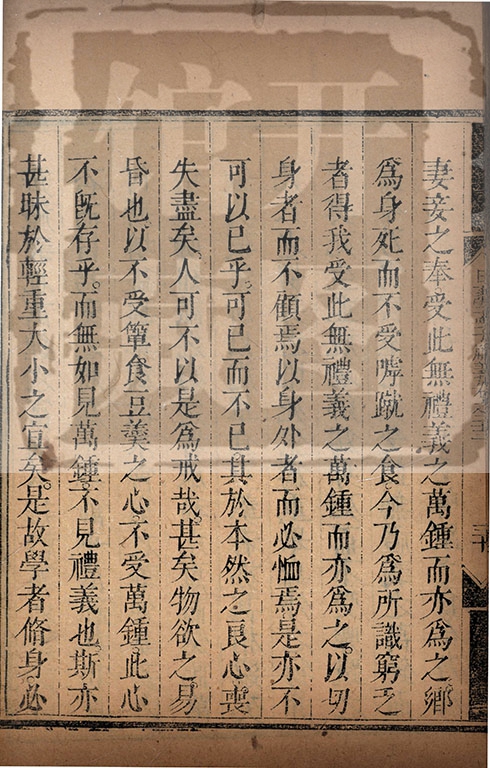 妻妾之奉受此無禮義之萬鍾而亦爲之鄉
爲身死而不受嘑蹴之食今乃爲所識窮乏
者得我受此無禮義之萬鍾而亦爲之以切
身者而不顧焉以身外者而必恤焉是亦不
可以已乎可已而不已其於本然之良心喪
失盡矣人可不以是爲戒哉甚矣物欲之易
昏也以不受簞食豆羹之心不受萬鍾此心
不旣存乎而無如見萬鍾不見禮義也斯亦
甚昧於輕重大小之宜矣是故學者脩身必